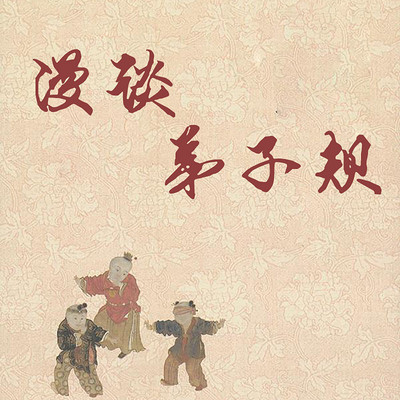 漫谈
弟子规